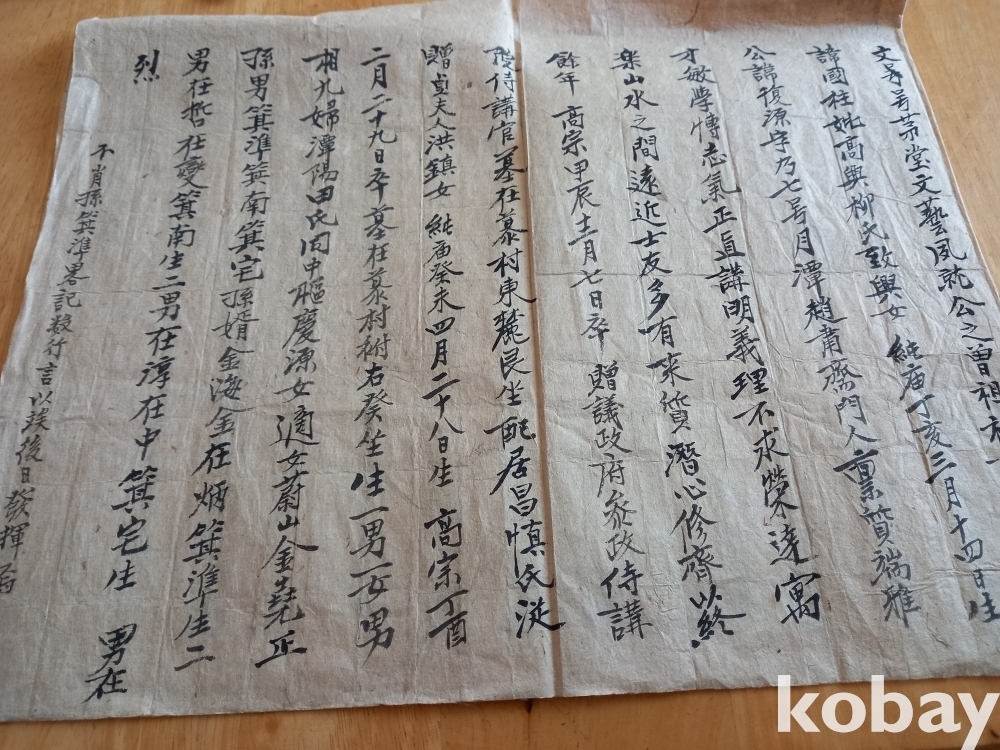 文專号茅堂文藝夙就公之曾祖祖
諱國柱妣高興柳氏致興女 純庙丁亥三月十四日生
公諱復源字乃七号月潭趙肅齋門人稟質端雅
才敏學博志氣正直講明義理不求榮達寓
樂山水之間遠近士友多有來質潛心修齊以終
餘年 高宗甲辰十二月七日卒 贈議政府參政侍講
院侍講官墓在慕村東麓艮坐 配居昌慎氏
贈貞夫人洪鎭女 純庙癸未四月二十八日生 高宗丁酉
二月二十九日卒 墓在慕村祔右癸坐生一男一女男
相九婦潭陽田氏同中樞慶源女適女蔚山金堯正
孫男箕準箕南箕宅孫婿金海金在炳箕準生二
男在哲在燮箕南生三男在淳在中箕宅生 男在
烈
不肖孫箕準畧記數行言以俟後日發揮焉
kobay